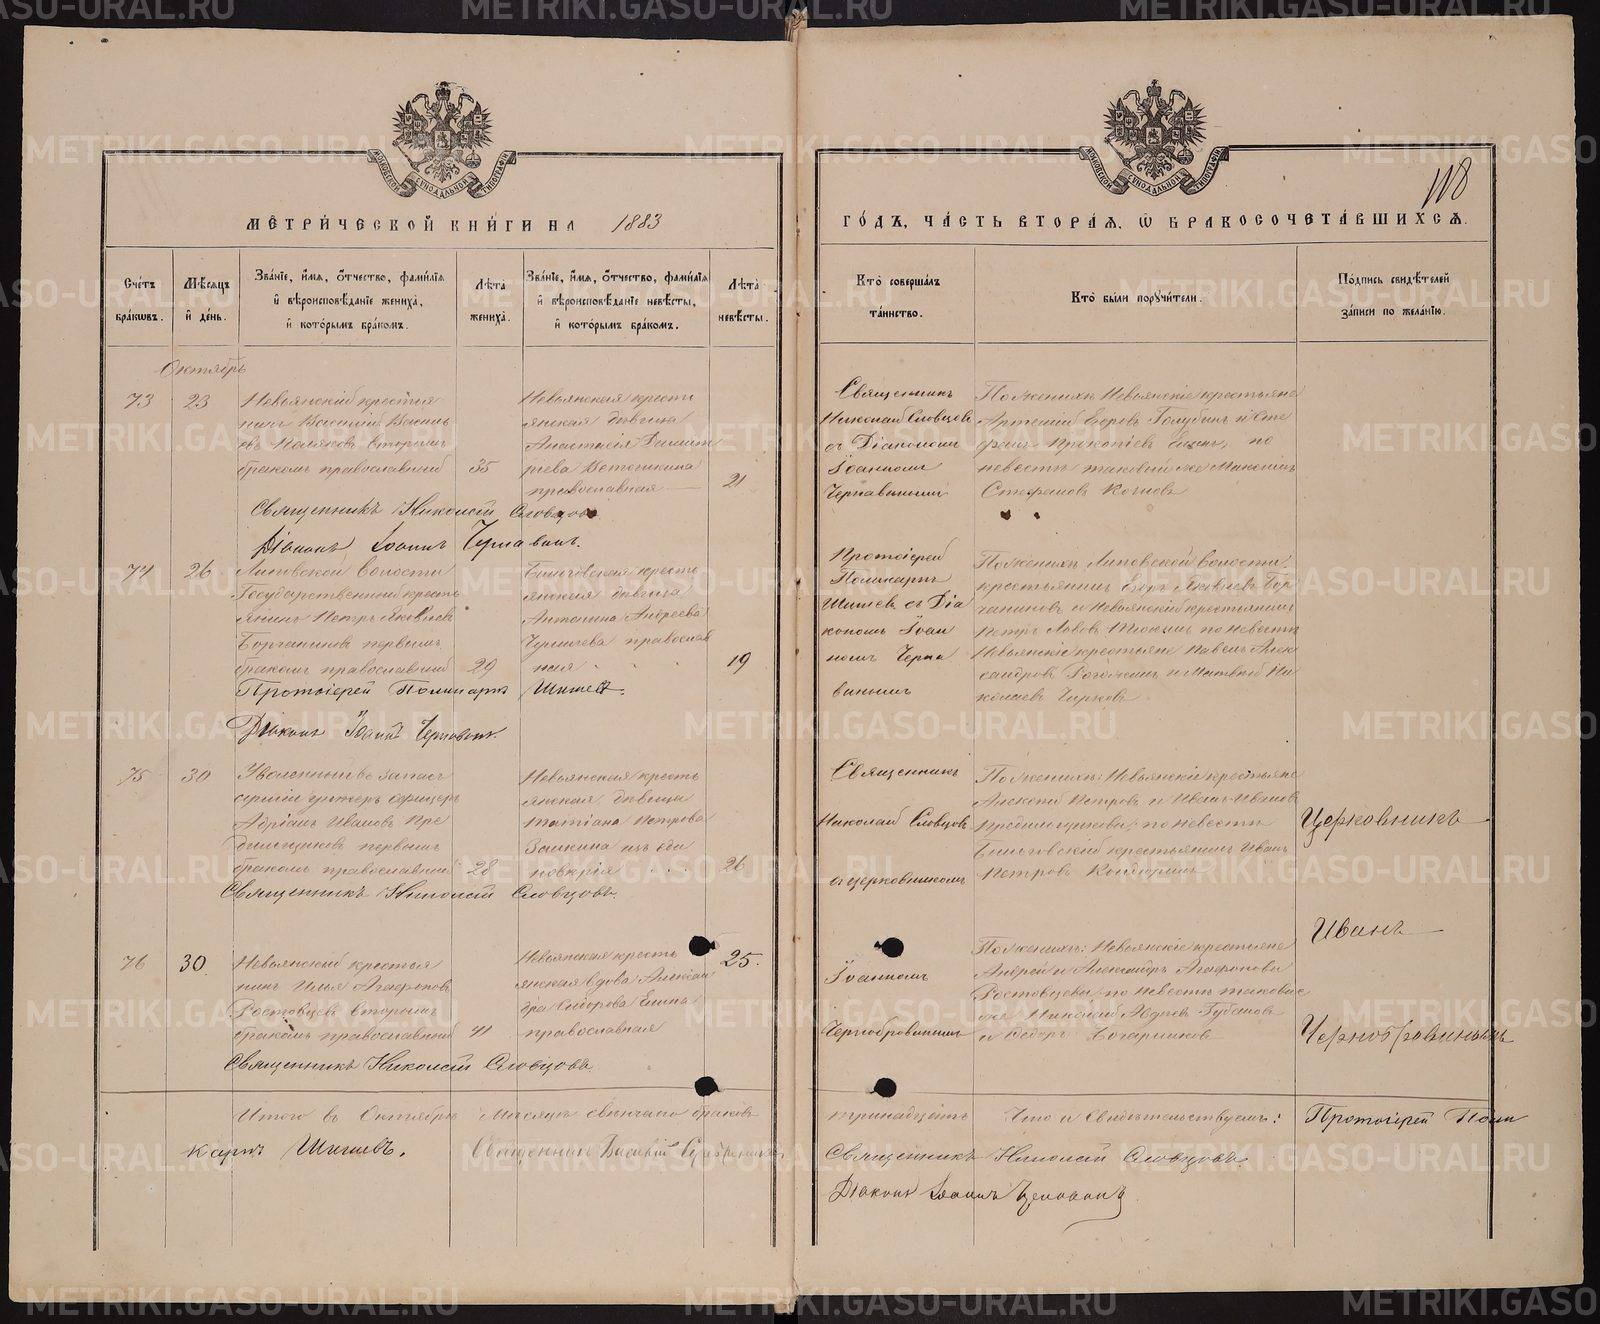 МЕТРИЧЕСКОЙ КНИГИ НА 1883
ГОДЪ, ЧАСТЬ ВТОРАЯ, Ѡ БРАКОСОЧЕТАВШИХСЯ.
118
Счетъ браковъ.
Мѣсяцъ и день.
Званіе, имя, отчество, фамилія
и вѣроисповѣданіе жениха,
и которымъ бракомъ.
Лѣта жениха.
Званіе, имя, отчество, фамилія
и вѣроисповѣданіе невѣсты,
и которымъ бракомъ.
Лѣта невѣсты.
Кто совершалъ
таинство.
Кто были поручители.
Подпись свидѣтелей
записи по желанію.
Октябрь
73
23
Невьянскій крестья
нинъ Василій Василь
евъ Поляковъ вторымъ
бракомъ православный
35
Невьянская кресть
янская дѣвица
Анастасія Димит
ріева
православная
21
Священникъ
Николай Словцовъ
съ Діакономъ
Іоанномъ
Чернавинымъ
По женихѣ Невьянскіе крестьяне
Артемій Егоровъ Голубинъ и Сте
фанъ Прокопіевъ по
невѣстѣ таковый же Максимъ
Стефановъ
Священникъ Николай Словцовъ
Діаконъ Іоаннъ Чернавинъ.
74
26
Липовской волости
Государственный кресть
янинъ Петръ Яковлевъ
Горчаниновъ первымъ
бракомъ православный
29
Быньговская кресть
янская дѣвица
Антонина Андреева
православ
ная
19
Протоіерей
Поликарпъ
Шишевъ съ Діа
кономъ Іоан
номъ Черна
винымъ
По женихѣ Липовской волости
крестьянинъ Егоръ Яковлевъ Гор
чаниновъ и Невьянскій крестьянинъ
Петръ Львовъ по невѣстѣ
Невьянскіе крестьяне Павелъ Алек
сандровъ и Матвѣй Ни
колаевъ Чирковъ
Протоіерей Поликарпъ Шишевъ.
Діаконъ Іоаннъ Чернавинъ.
75
30
Уволенный въ запасъ
арміи унтеръ офицеръ
Адріанъ Ивановъ Пре
первымъ
бракомъ православный
28
Невьянская кресть
янская дѣвица
Татіана Петрова
изъ еди
новѣрія
26
Священникъ
Николай Словцовъ
съ церковникомъ
По женихѣ: Невьянскіе крестьяне
Алексѣй Петровъ и Иванъ Ивановъ
по невѣстѣ
Быньговскій крестьянинъ Иванъ
Петровъ
Церковникъ
Священникъ Николай Словцовъ.
Иванъ
76
30
Невьянскій крестья
нинъ Илья Агафоновъ
Ростовцевъ вторымъ
бракомъ православный
41
Невьянская кресть
янская вдова Алексан
дра Сидорова
православная
25.
Іоанномъ
Чернобровинымъ
По женихѣ: Невьянскіе крестьяне
Андрей и Александръ Агафоновы
Ростовцевы; по невѣстѣ таковые
же Николай Губановъ
и Ѳедоръ
Чернобровинымъ
Священникъ Николай Словцовъ.
Итого въ Октябрѣ мѣсяцѣ свѣнчано браковъ
тринадцать Что и Свидѣтельствуемъ: Протоіерей Поли
карпъ Шишевъ. Священникъ Василій
Священникъ Николай Словцовъ.
Діаконъ Іоаннъ Чернавинъ.
METRIKI.GASO-URAL.RU